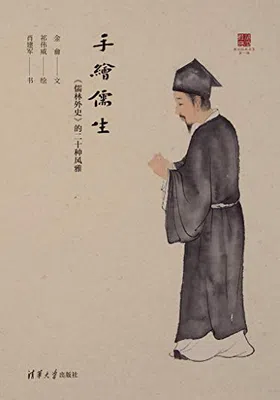 手繪儒生
《儒林外史》的二十种风雅
金 —— 文
祁伟威——绘
肖建军——书
清华大学出版社